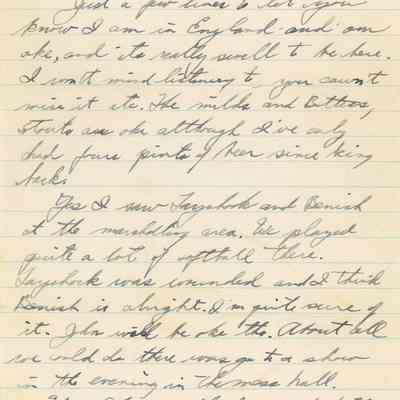 Just a few lines to let you
know I am in England and am
oke, and its really swell to be here.
I won't mind listening to, you can't
miss it etc. The milds and Bitters,
stouts are oke although I've only
had four pints of beer since being
back.
Yes I saw Jayshock and Benish
at the marshalling area. We played
quite a lot of softball there.
Jayshock was wounded and I think
Benish is alright. I'm quite sure of
it. John will be oke tho. About all
we could do there was go to a show
in the evening in the mess hall.